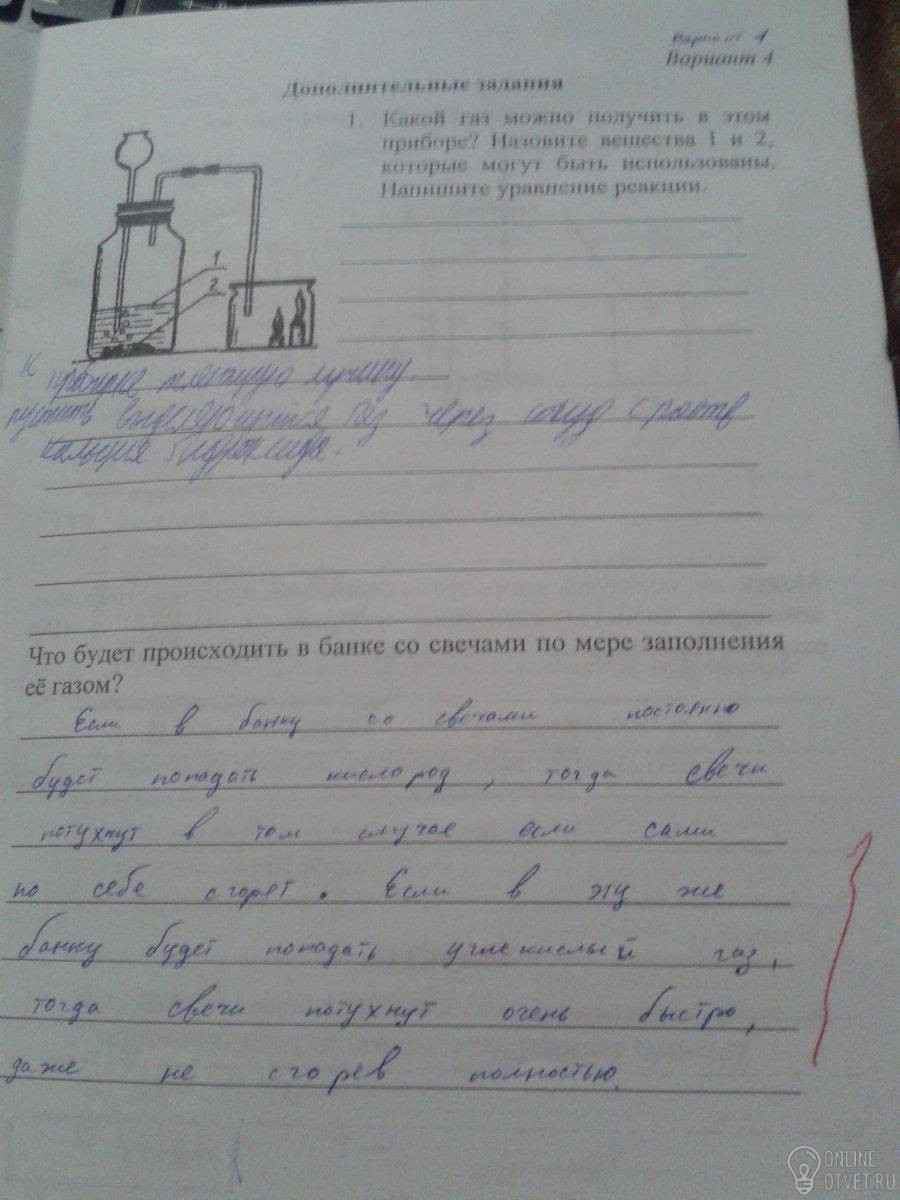 Вариант 1
Вариант 4
Дополнительные задания
1. Какой газ можно получить в этом
приборе? Назовите вещества 1 и 2,
которые могут быть использованы.
Напишите уравнение реакции.
1
2
К пробирке тлеющую лучину.
пустить выделяющийся газ через сосуд с раств
кальция гидроксида.
Что будет происходить в банке со свечами по мере заполнения
её газом?
Если в банку со свечами постоянно
будет попадать кислород, тогда свечи
потухнут в том случае если сами
по себе сгорят. Если в эту же
банку будет попадать углекислый газ,
тогда свечи потухнут очень быстро,
даже не сгорев полностью.
ONLINE
OTVET.RU